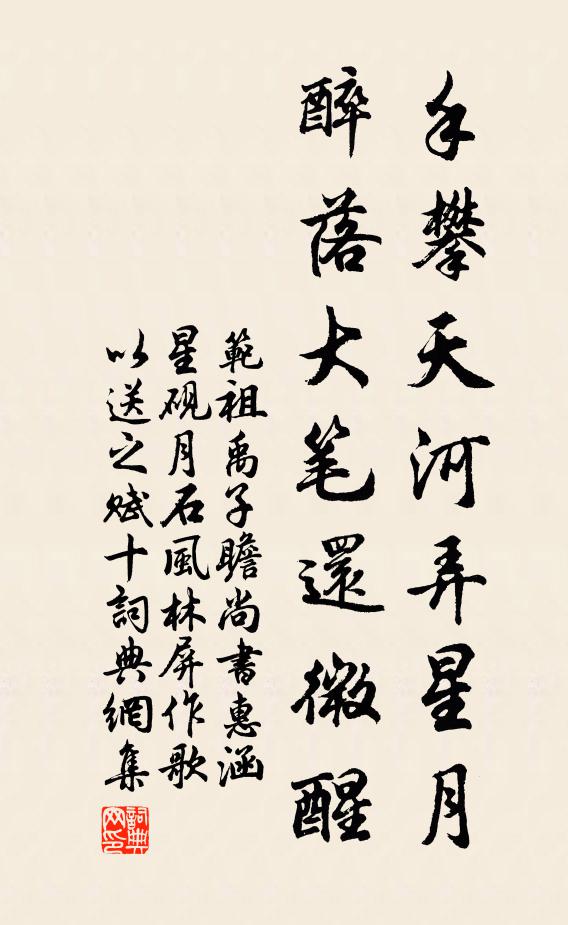 手攀天河弄星月
醉落大笔還微醒
範祖禹子瞻尚書惠涵
星硯月石風林屏作歌
以送之賦十詞典網集
詞典网印